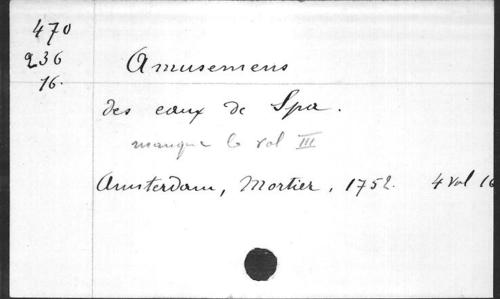 470
236
16.
Amusemens
des eaux de Spa.
manque le vol III
Amsterdam, Mortier, 1752. 4 vol 16